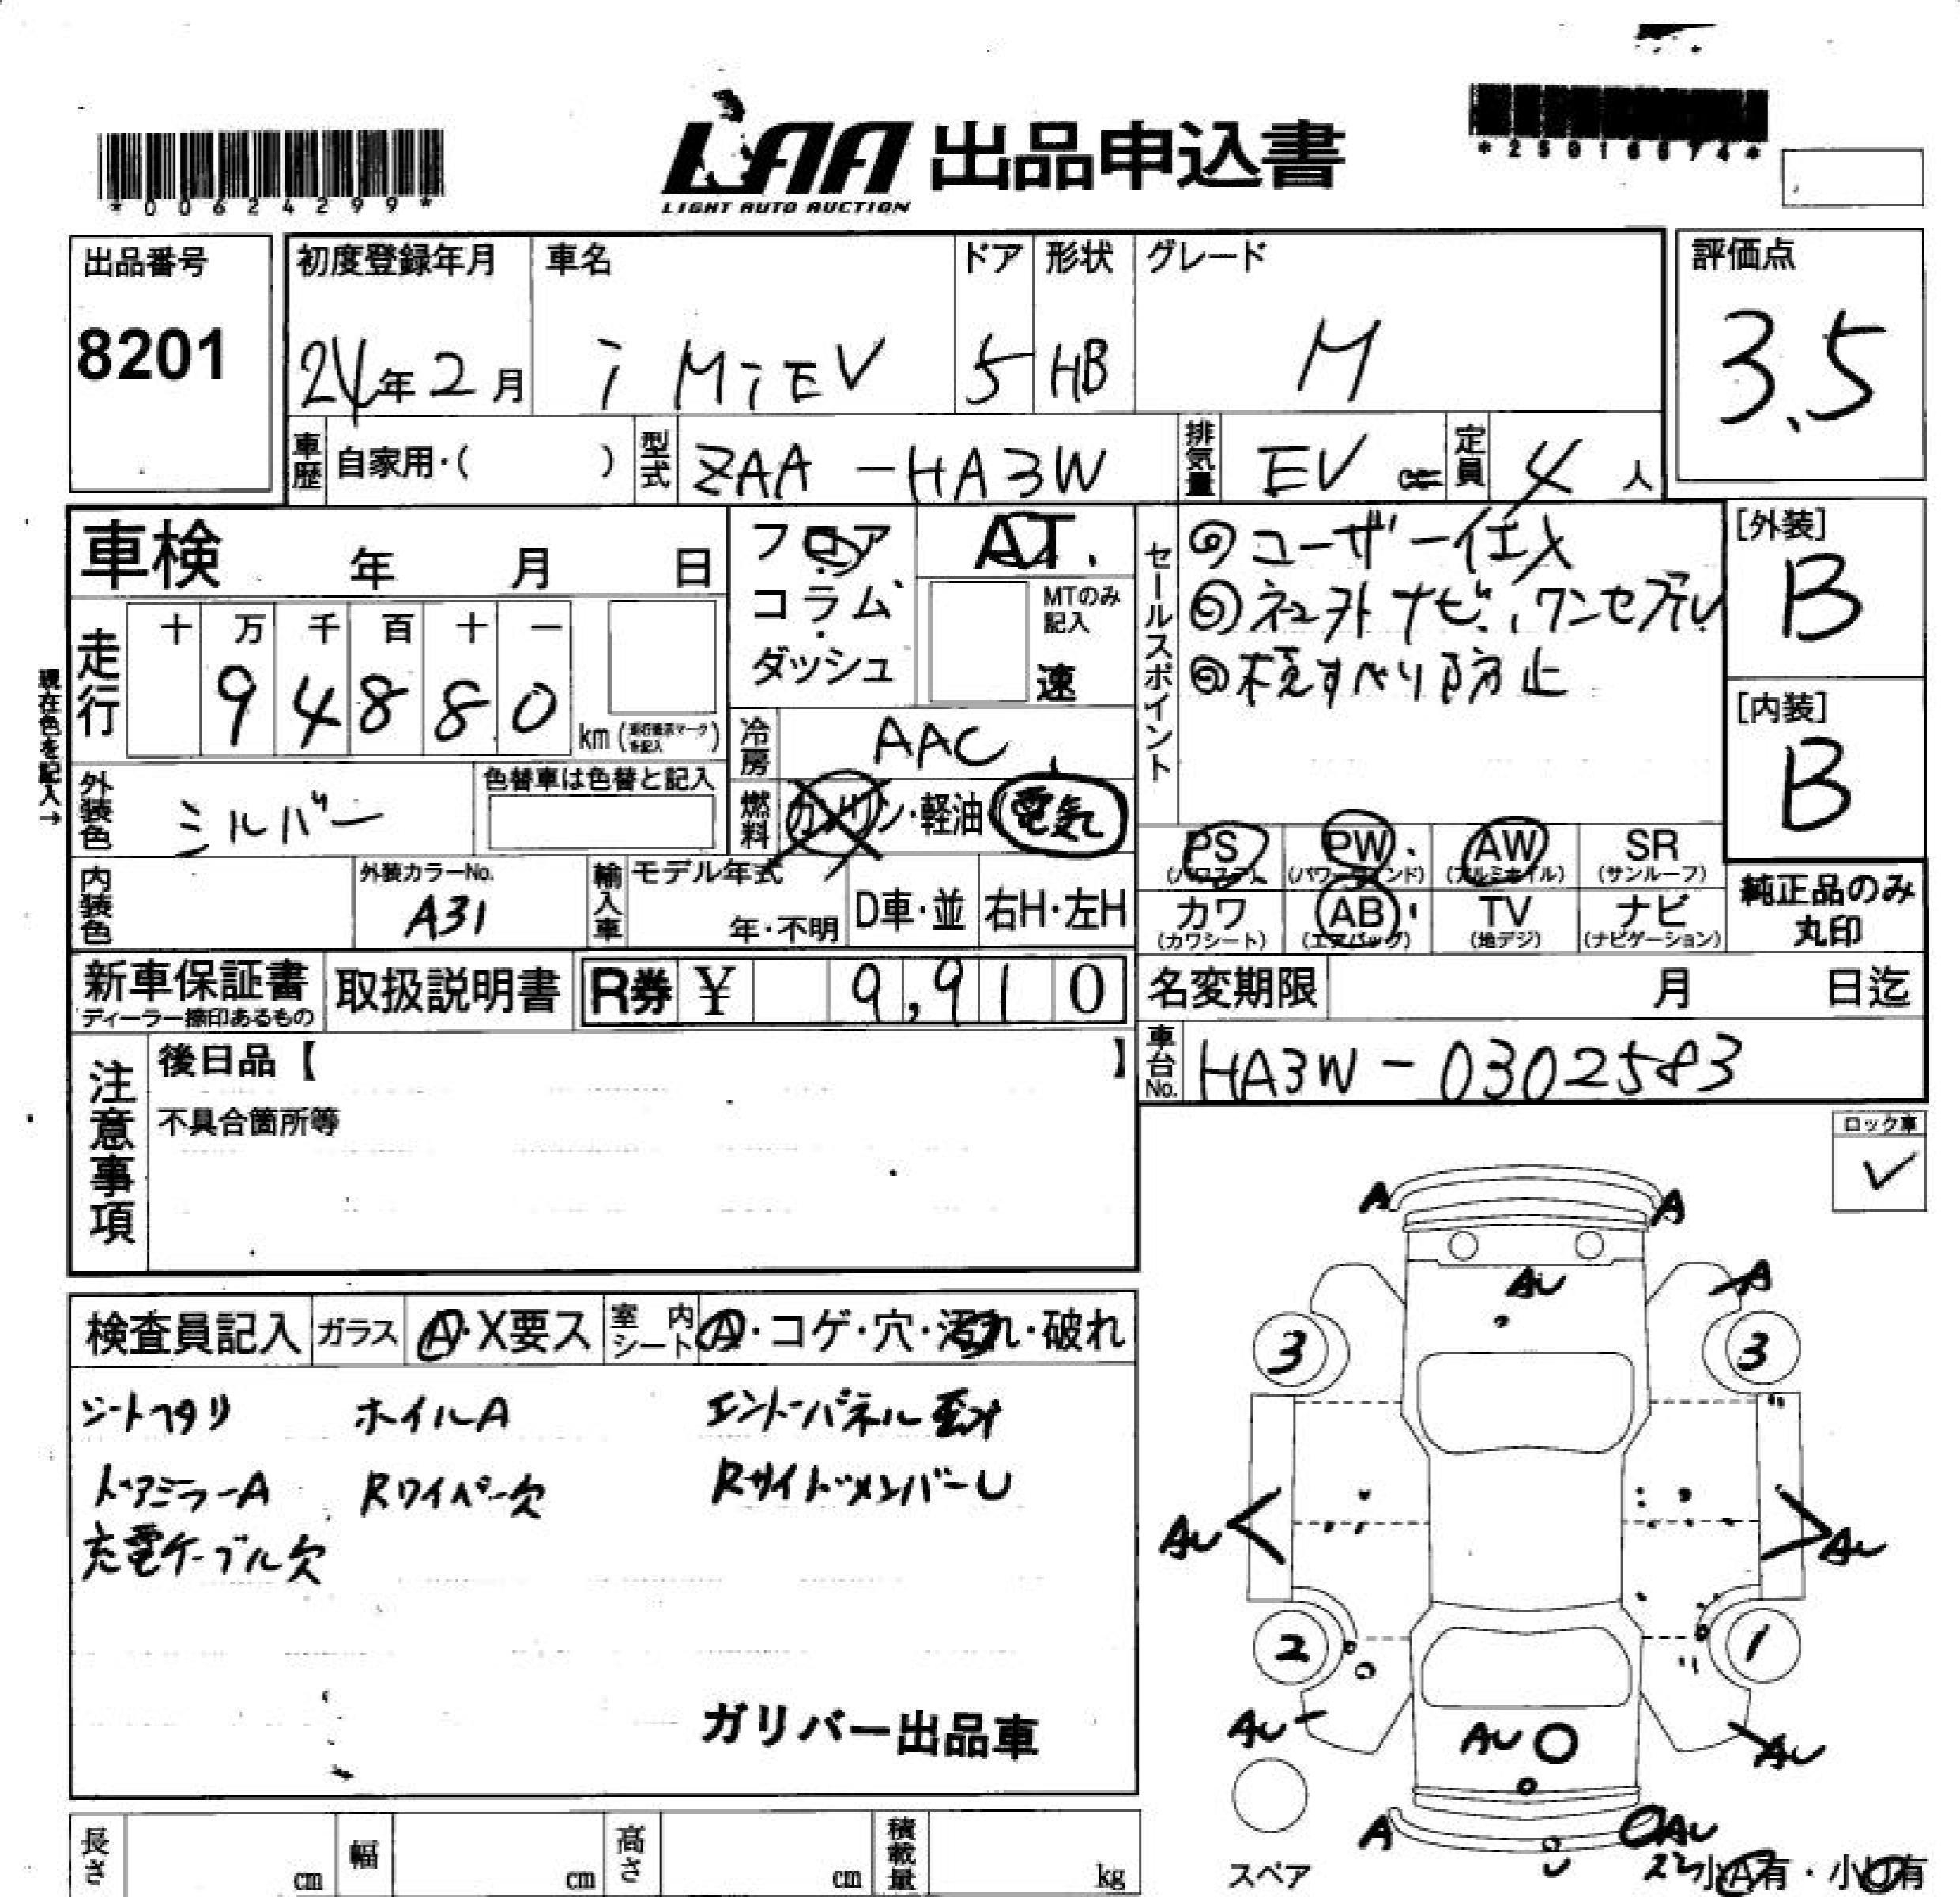 *00624299*
LAA 出品申込書
LIGHT AUTO AUCTION
*25016674*
出品番号
8201
初度登録年月
24年2月
車名
i MiEV
ドア
5
形状
HB
グレード
M
評価点
3.5
車歴 自家用・( )
型式 ZAA-HA3W
排気量 EV cc
定員 4人
車検 年 月 日
フロア・コラム・ダッシュ
AT.
MTのみ記入
速
セールスポイント
◎ユーザー仕入
◎社外ナビ、ワンセグTV
◎横すべり防止
[外装]
B
[内装]
B
現在色を記入→
走行
十 万 千 百 十 一
9 4 8 8 0
km
冷房 AAC
外装色 シルバー
色替車は色替と記入
燃料 ガソリン・軽油・電気
PS (パワステ)
PW (パワーウインド)
AW (アルミホイル)
SR (サンルーフ)
内装色
外装カラーNo.
A31
輸入車
モデル年式
年・不明
D車・並
右H・左H
カワ (カワシート)
AB (エアバッグ)
TV (地デジ)
ナビ (ナビゲーション)
純正品のみ丸印
新車保証書
ディーラー捺印あるもの
取扱説明書
R券 ¥ 9,910
名変期限 月 日迄
車台No. HA3W-0302583
注意事項
後日品【 】
不具合箇所等
ロック車
✓
検査員記入
ガラス A・X要ス
室内シート A・コゲ・穴・汚れ・破れ
シートヘタリ ホイルA エンドパネル歪み
ドアミラーA Rワイパー欠 RサイドメンバーU
充電ケーブル欠
ガリバー出品車
A A
AU A
3 3
AU AU
2 1
AU AU AU
A AU
スペア
小A有・小U有
長さ cm
幅 cm
高さ cm
積載量 kg